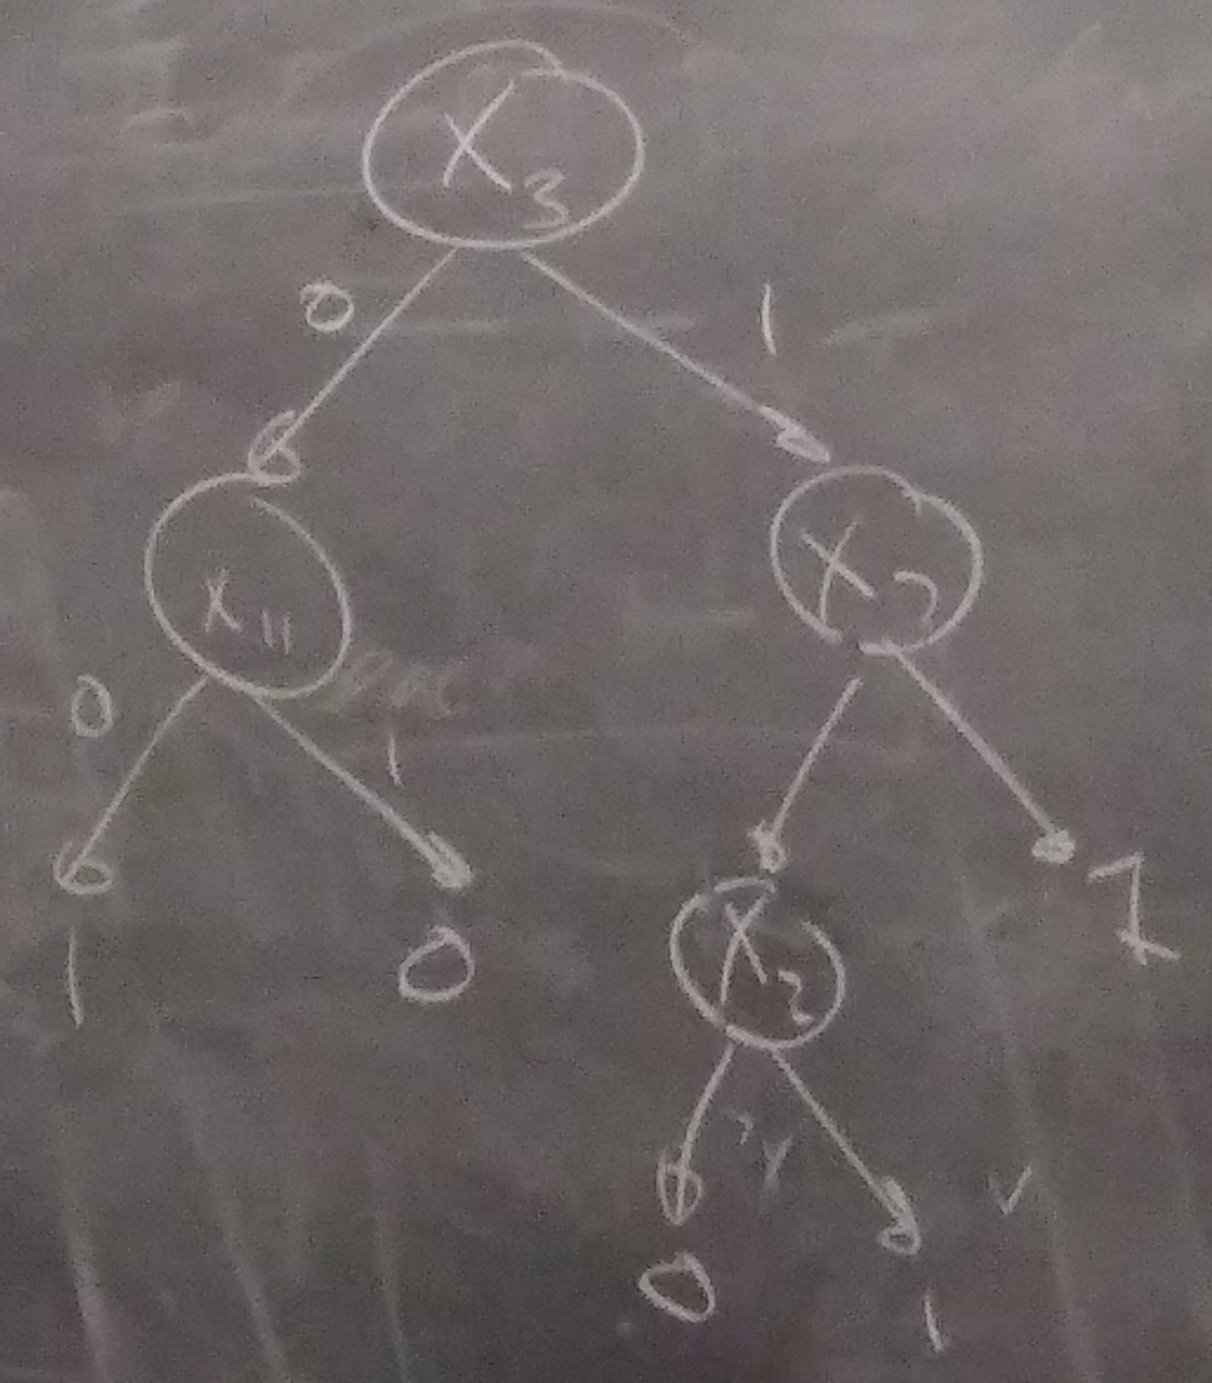 X3
0 1
X11 X7
0 1
1 0 X2 1
0 1